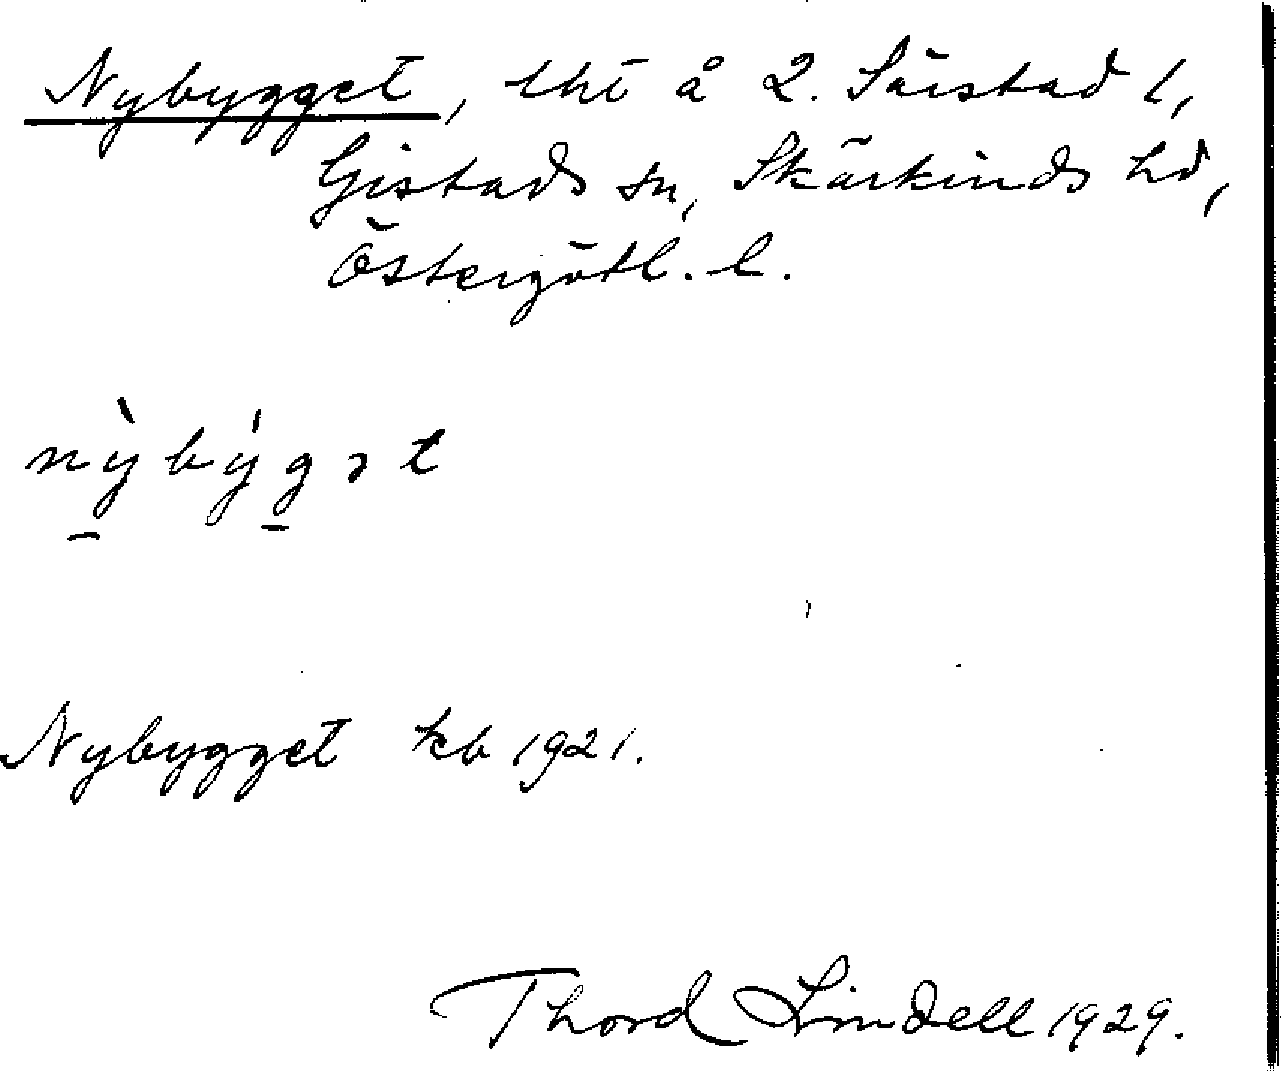 Nybygget, lht å L. Särstad 1,
Gistads sn, Skärkinds hd,
Östergötl. l.
nỳbýgət
Nybygget kb 1921.
Thord Lindell 1929.